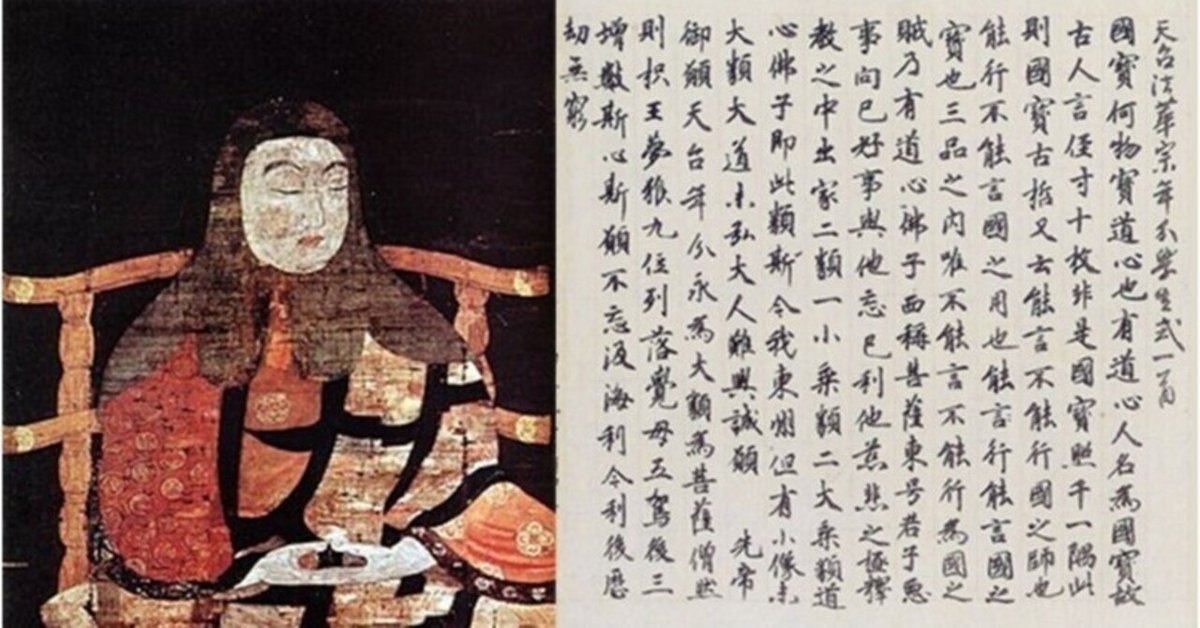 天台法華宗年分學生式一首
國寶何物寶道心也有道心人名為國寶故
古人言徑寸十枚非是國寶照千一隅此
則國寶古哲又云能言不能行國之師也
能行不能言國之用也能言行能言國之
寶也三品之内唯不能言不能行為國之
賊乃有道心佛子西稱菩薩東号君子惡
事向己好事與他忘己利他慈悲之極釋
教之中出家二類一小乘類二大乘類道
心佛子即此類斯今我東州但有小像未
大類大道未弘大人難興誠願 先帝
御願天台年分永為大類為菩薩僧然
則枳王夢猴九位列落覺母五駕後三
增數斯心斯願不忘汲海利今利後歷
劫無窮